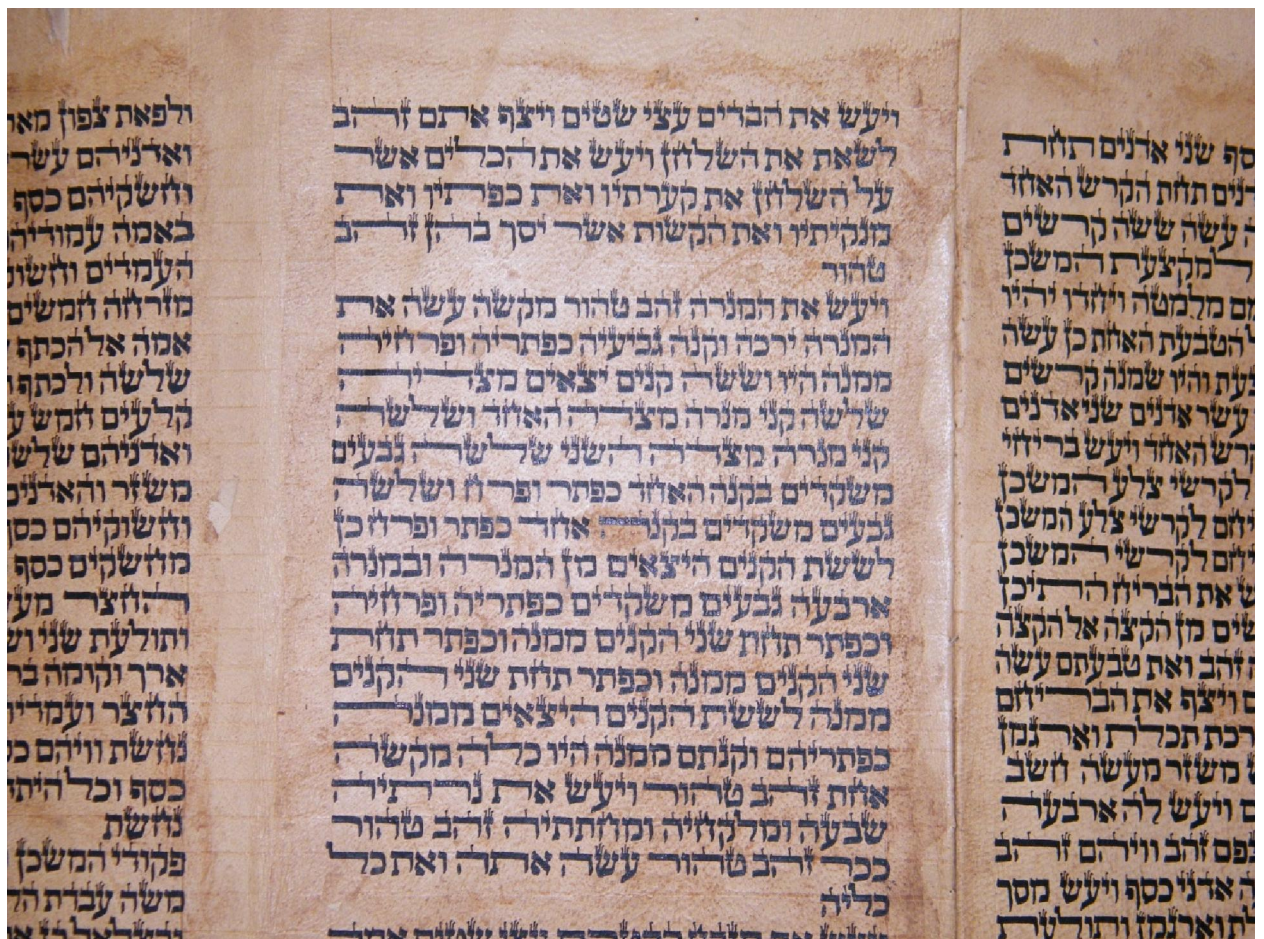 סף שני אדנים תחת
דנים תחת הקרש האחד
ה עשה ששה קרשים
למקצעת המשכן
מם מלמטה ויחדו יהיו
ל הטבעת האחת כן עשה
בעת והיו שמנה קרשים
עשר אדנים שני אדנים
קרש האחד ויעש בריחי
לקרשי צלע המשכן
יחם לקרשי צלע המשכן
יחם לקרשי המשכן
ש את הבריח התיכן
שים מן הקצה אל הקצה
ה זהב ואת טבעתם עשה
ם ויצף את הבריחם
רכת תכלת וארגמן
ש משזר מעשה חשב
ם ויעש לה ארבעה
צפם זהב וויהם זהב
ה אדני כסף ויעש מסך
לת וארגמן ותולעת
ויעש את הבדים עצי שטים ויצף אתם זהב
לשאת את השלחן ויעש את הכלים אשר
על השלחן את קערתיו ואת כפתיו ואת
מנקיתיו ואת הקשות אשר יסך בהן זהב
טהור
ויעש את המנרה זהב טהור מקשה עשה את
המנרה ירכה וקנה גביעיה כפתריה ופרחיה
ממנה היו וששה קנים יצאים מצדיה
שלשה קני מנרה מצדה האחד ושלשה
קני מנרה מצדה השני שלשה גבעים
משקדים בקנה האחד כפתר ופרח ושלשה
גבעים משקדים בקנה אחד כפתר ופרח כן
לששת הקנים היצאים מן המנרה ובמנרה
ארבעה גבעים משקדים כפתריה ופרחיה
וכפתר תחת שני הקנים ממנה וכפתר תחת
שני הקנים ממנה וכפתר תחת שני הקנים
ממנה לששת הקנים היצאים ממנה
כפתריהם וקנתם ממנה היו כלה מקשה
אחת זהב טהור ויעש את נרתיה
שבעה ומלקחיה ומחתתיה זהב טהור
ככר זהב טהור עשה אתה ואת כל
כליה
ולפאת צפון מאה
ואדניהם עשר
וחשקיהם כסף
באמה עמודיה
העמדים וחשוק
מזרחה חמשים
אמה אל הכתף
שלשה ולכתף
קלעים חמש ע
ואדניהם שלש
משזר והאדנים
וחשוקיהם כסף
מחשקים כסף
החצר מע
ותולעת שני וש
ארך וקומה בר
החצר ועמדיה
נחשת וויהם כס
כסף וכל היתד
נחשת
פקודי המשכן
משה עבדת הל